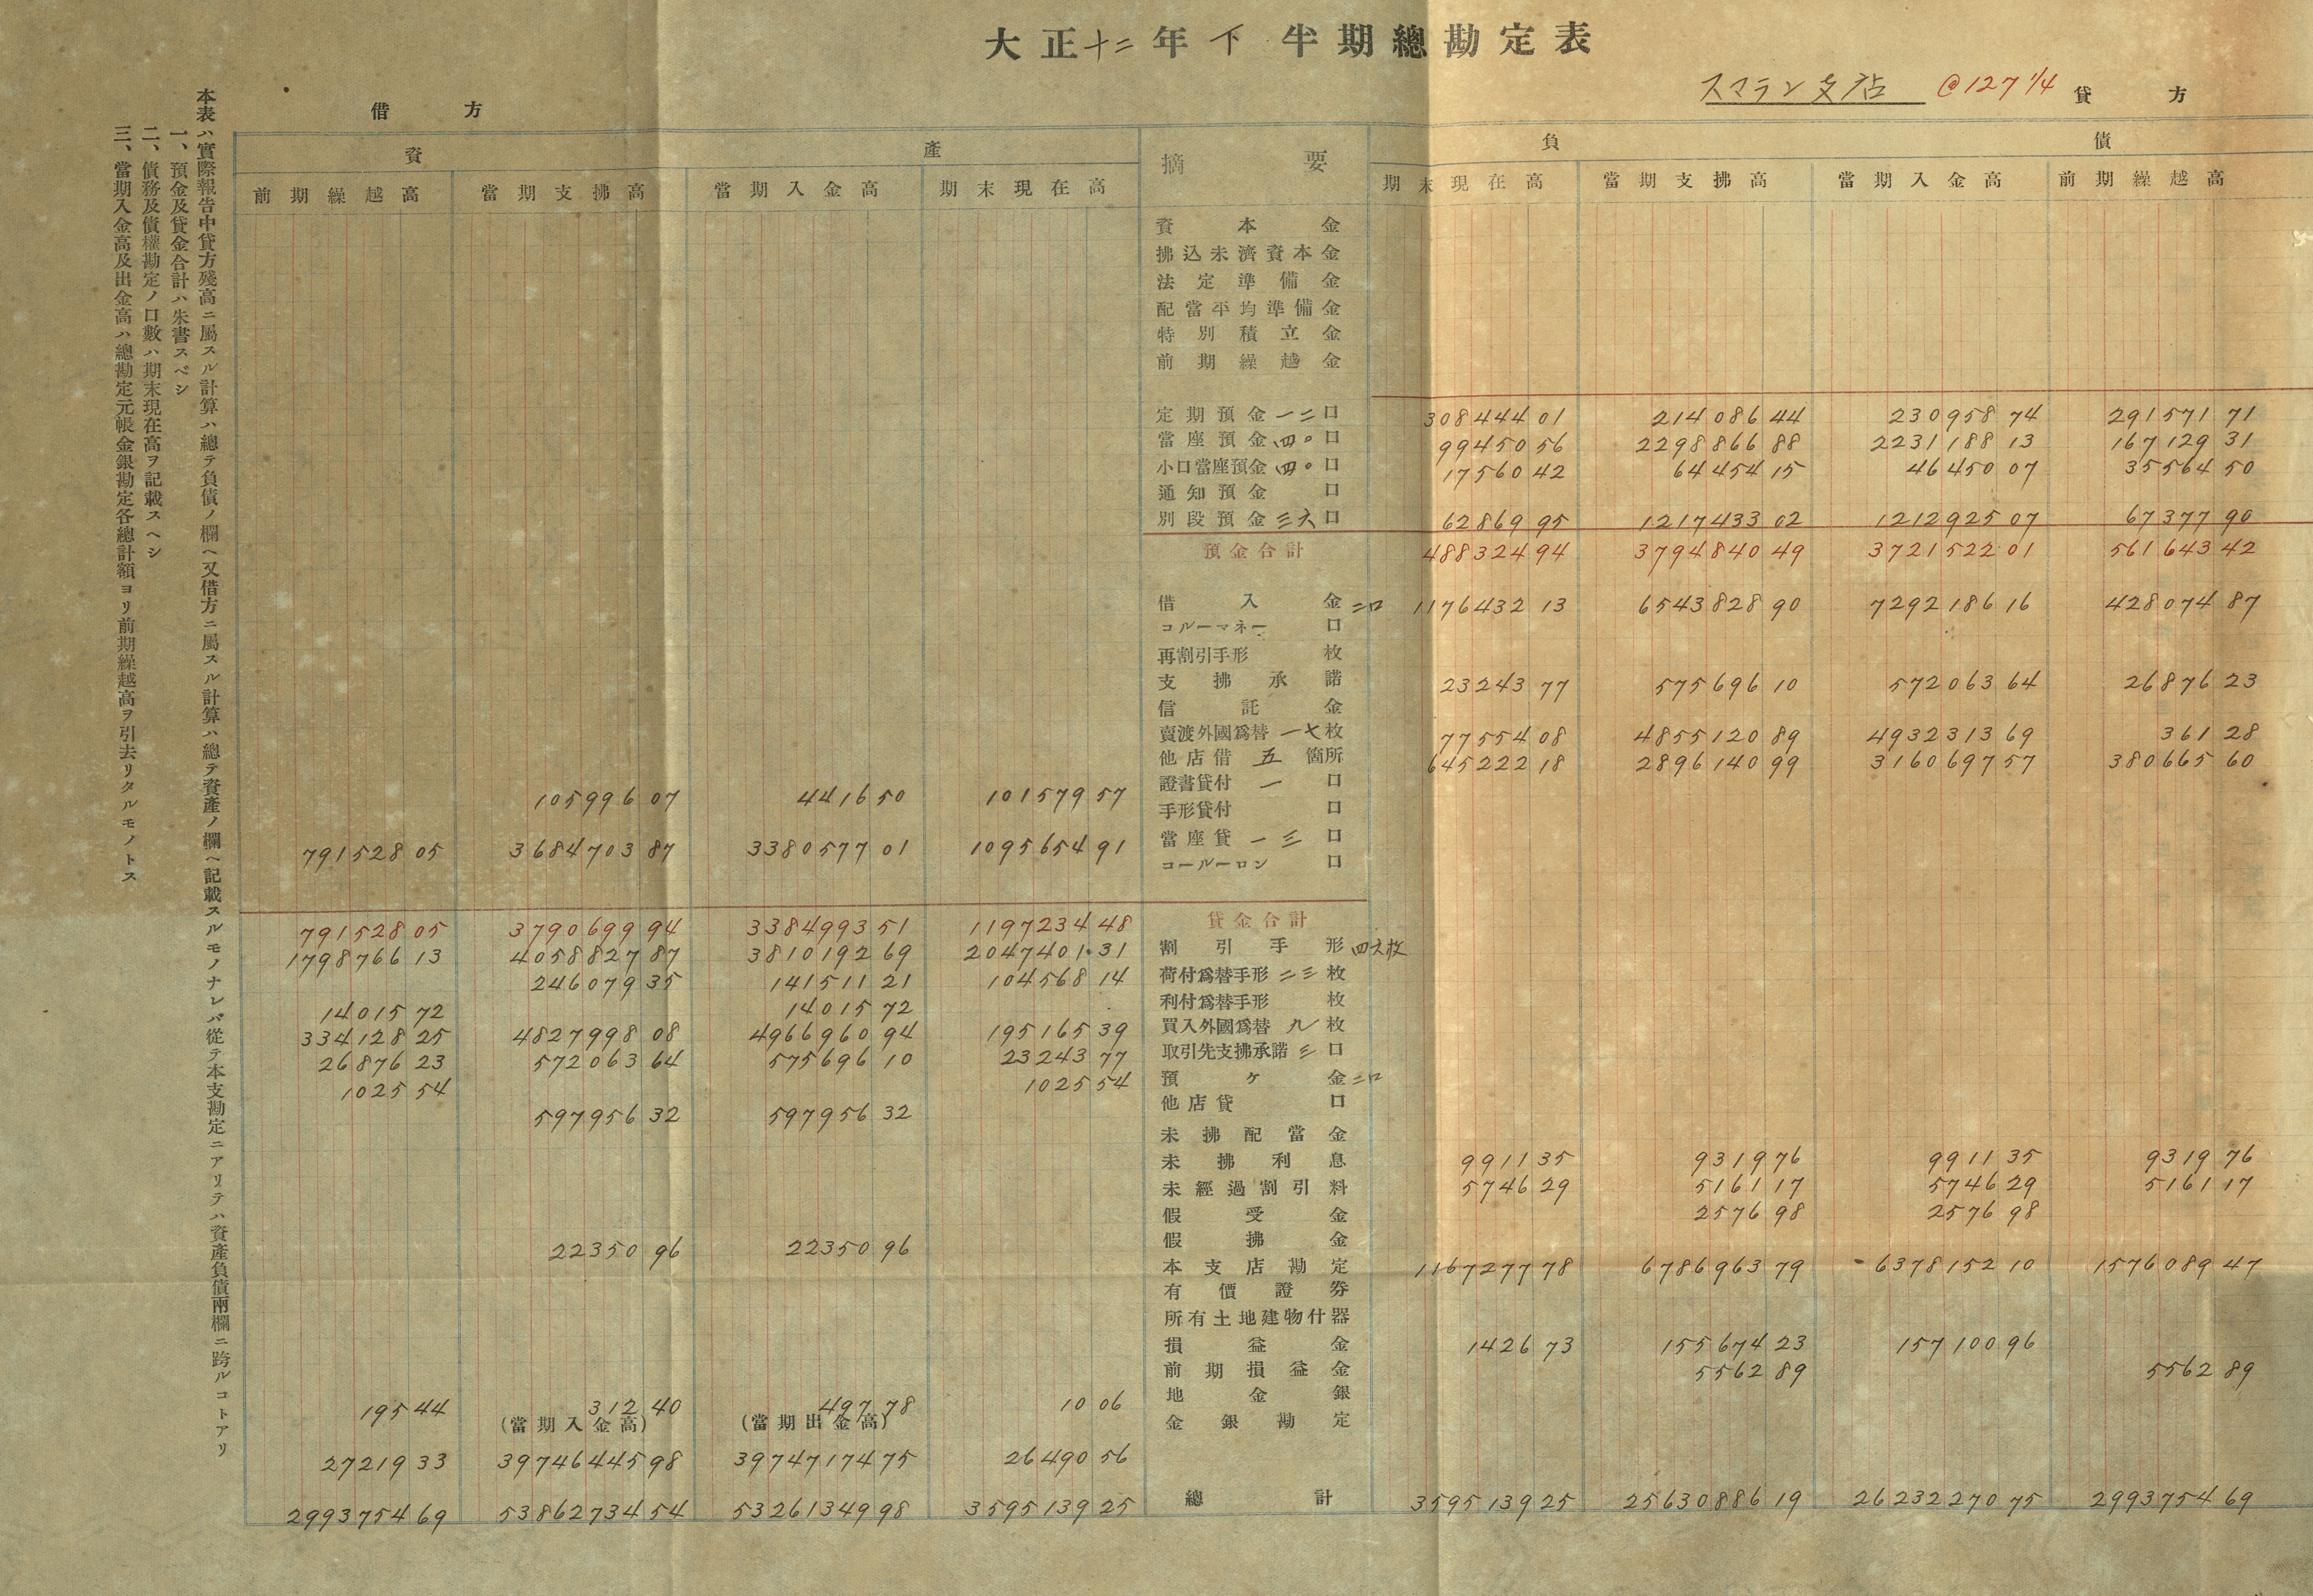 大正十二年下半期總勘定表
スマラン支店 @127 1/4
借方 貸方
資產 摘要 負債
前期繰越高 當期支拂高 當期入金高 期末現在高 期末現在高 當期支拂高 當期入金高 前期繰越高
資本金
拂込未濟資本金
法定準備金
配當平均準備金
特別積立金
前期繰越金
定期預金一二口 308444 01 214086 44 230958 74 291571 71
當座預金四〇口 99450 56 2298866 88 2231188 13 167129 31
小口當座預金四〇口 17560 42 64454 15 46450 07 35564 50
通知預金 口
別段預金三六口 62869 95 1217433 02 1212925 07 67377 90
預金合計 488324 94 3794840 49 3721522 01 561643 42
借入金二口 1176432 13 6543828 90 7292186 16 428074 87
コルーマネー 口
再割引手形 枚
支拂承諾 23243 77 575696 10 572063 64 26876 23
信託金
賣渡外國爲替一七枚 77554 08 4855120 89 4932313 69 361 28
他店借五箇所 645222 18 2896140 99 3160697 57 380665 60
105996 07 4416 50 101579 57 證書貸付一口
手形貸付 口
791528 05 3684703 87 3380577 01 1095654 91 當座貸一三口
コールーロン 口
791528 05 3790699 94 3384993 51 1197234 48 貸金合計
1798766 13 4058827 87 3810192 69 2047401 31 割引手形四六枚
246079 35 141511 21 104568 14 荷付爲替手形二三枚
14015 72 14015 72 利付爲替手形 枚
334128 25 4827998 08 4966960 94 195165 39 買入外國爲替九枚
26876 23 572063 64 575696 10 23243 77 取引先支拂承諾三口
1025 54 1025 54 預ヶ金二口
597956 32 597956 32 他店貸 口
未拂配當金
未拂利息 9911 35 9319 76 9911 35 9319 76
未經過割引料 5746 29 5161 17 5746 29 5161 17
假受金 2576 98 2576 98
22350 96 22350 96 假拂金
本支店勘定 1167277 78 6786963 79 6378152 10 1576089 47
有價證券
所有土地建物什器
損益金 1426 73 155674 23 157100 96
前期損益金 5562 89 5562 89
195 44 312 40 497 78 10 06 地金銀
(當期入金高) (當期出金高) 金銀勘定
27219 33 39746445 98 39747174 75 26490 56
2993754 69 53862734 54 53261349 98 3595139 25 總計 3595139 25 25630886 19 26232270 75 2993754 69
本表ハ實際報告中貸方殘高ニ屬スル計算ハ總テ負債ノ欄ヘ又借方ニ屬スル計算ハ總テ資產ノ欄ヘ記載スルモノナレバ從テ本支勘定ニアリテハ資產負債兩欄ニ跨ルコトアリ
一、預金及貸金合計ハ朱書スベシ
二、債務及債權勘定ノ口數ハ期末現在高ヲ記載スヘシ
三、當期入金高及出金高ハ總勘定元帳金銀勘定各總計額ヨリ前期繰越高ヲ引去リタルモノトス